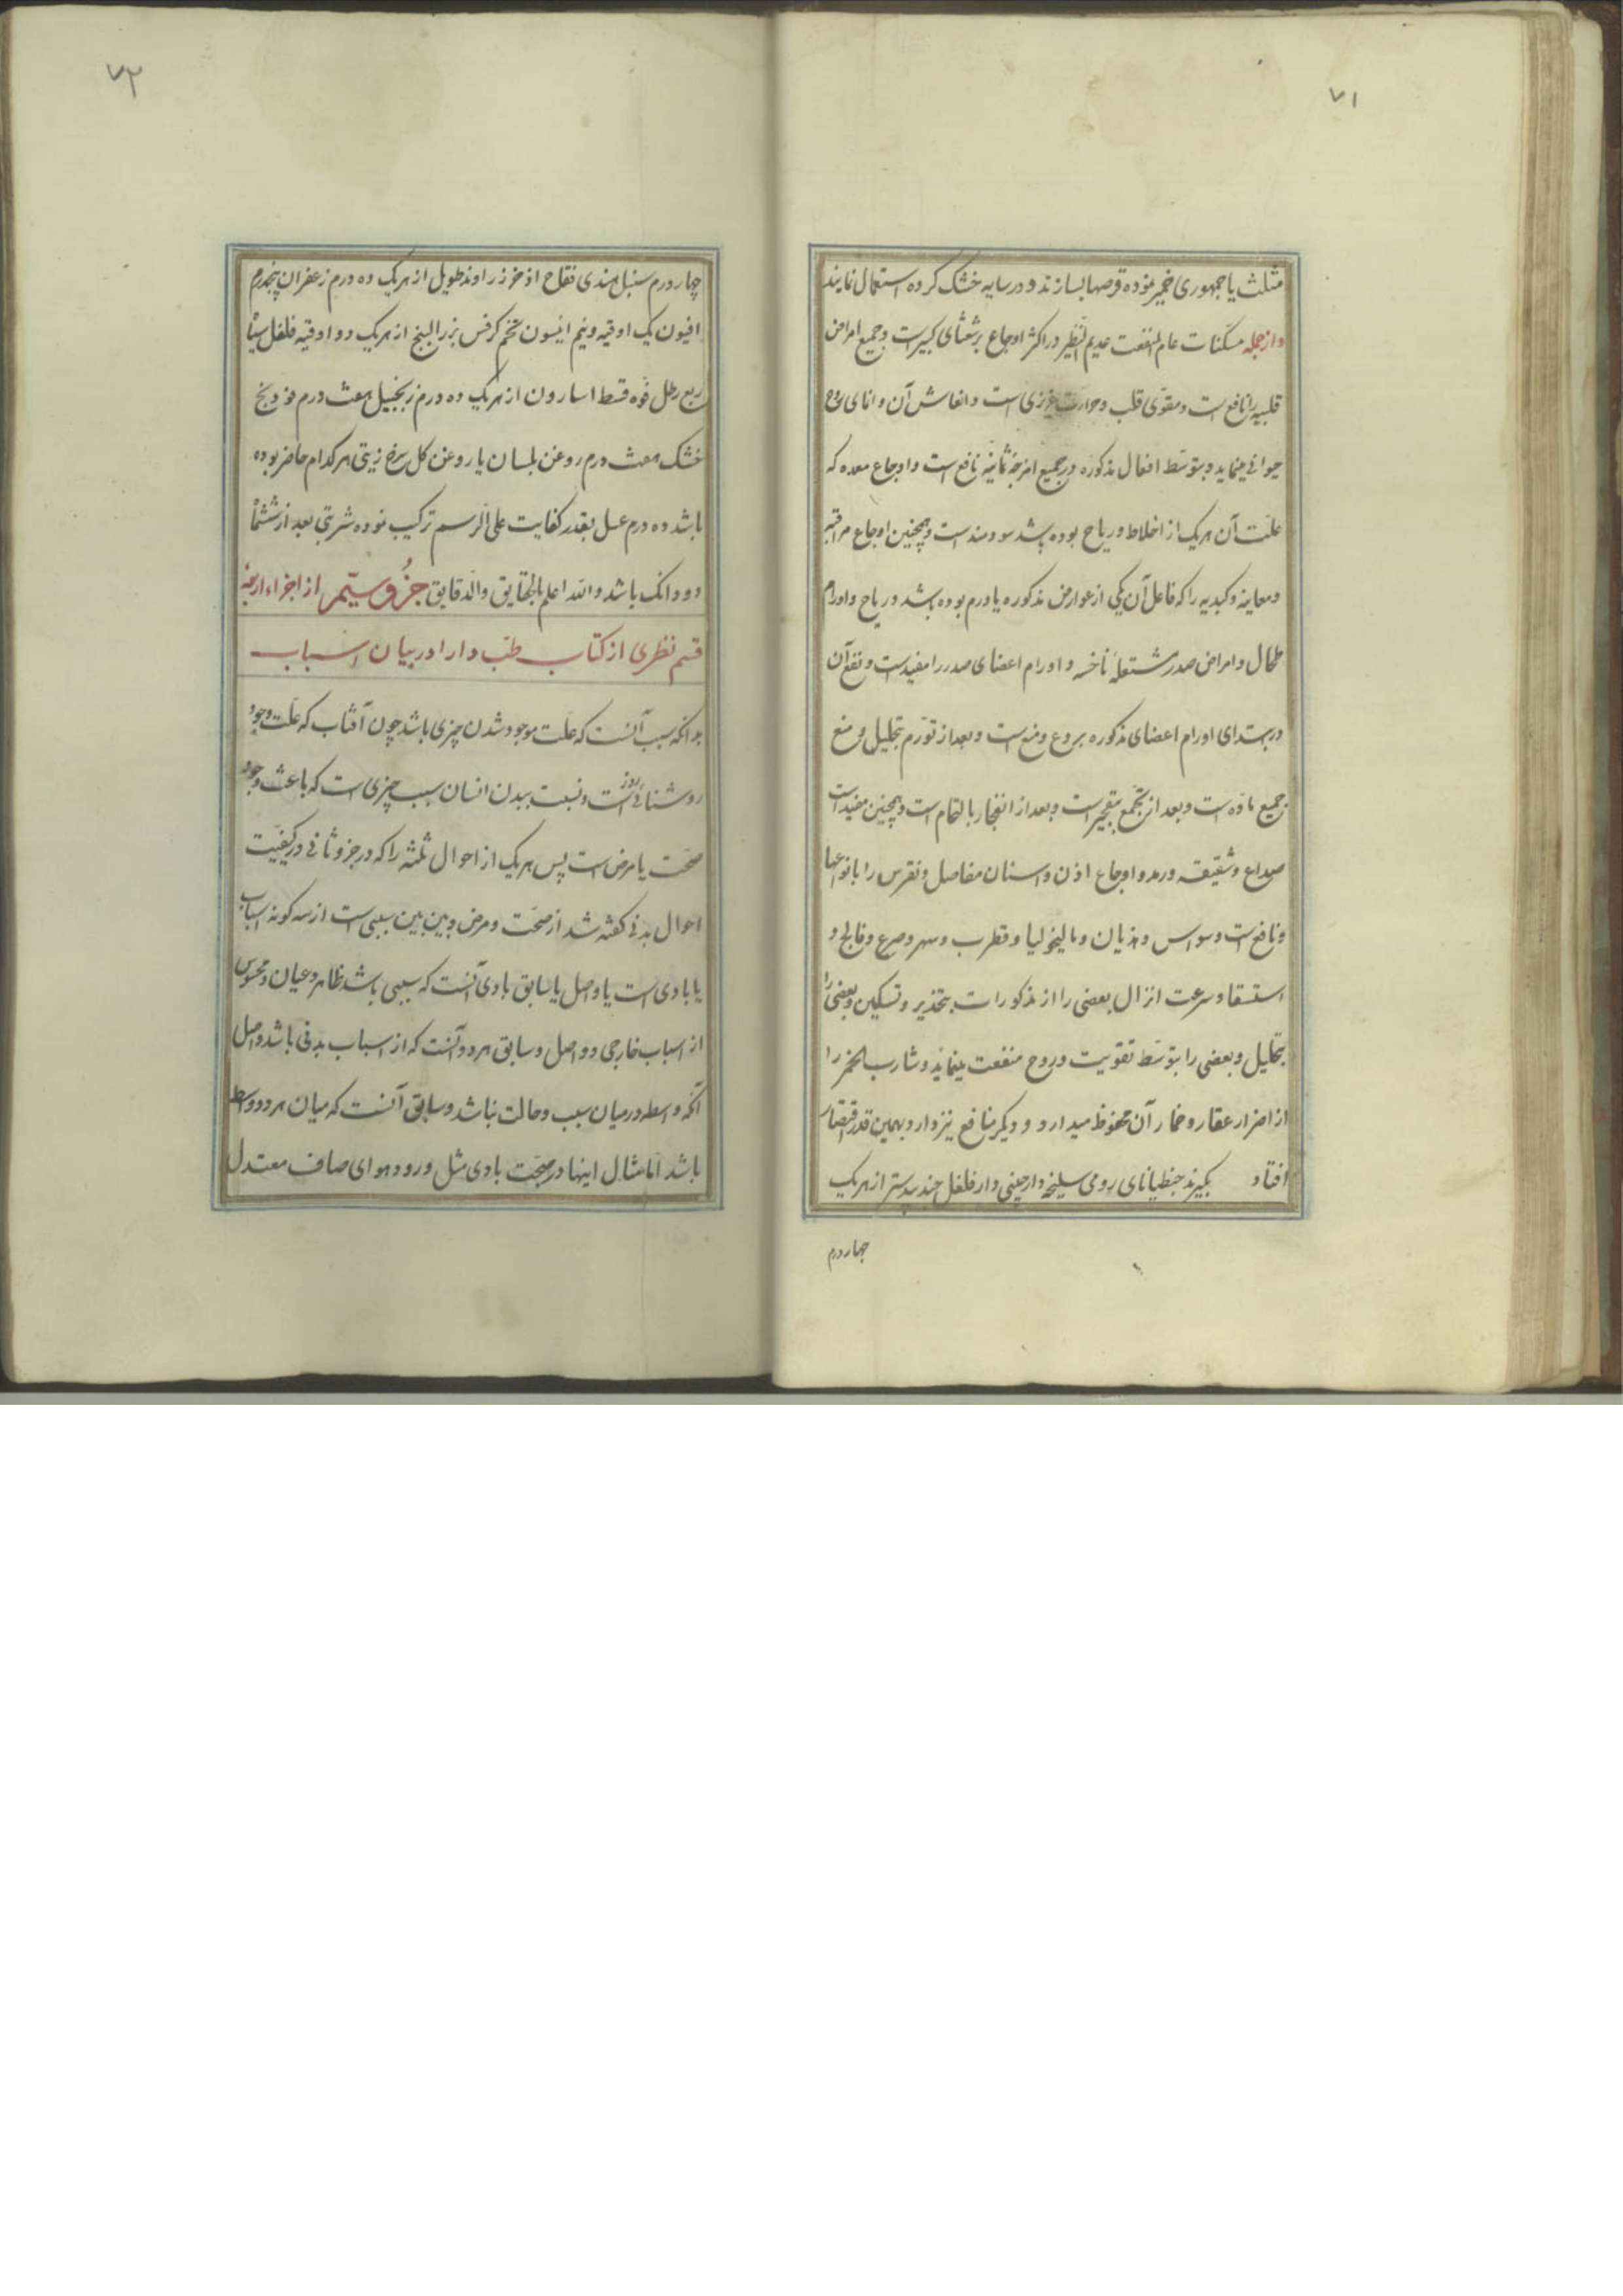 ۷۱
مثلث یا جمهوری خمیر نموده قرصها بسازند و در سایه خشک کرده استعمال نمایند
و از جمله مسکنات عام المنفعت عدیم النظیر در اکثر اوجاع برشعثای کبیر است و جمیع امراض
قلبیه را نافع است و مقوی قلب و حرارت غریزی است و انعاش آن و انمای روح
حیوانی مینماید و بتوسط افعال مذکوره در جمیع امزجه ثمانیه نافع است و اوجاع معده که
علت آن هر یک از اخلاط و ریاح بوده باشد سودمند است و همچنین اوجاع مراقیه
و معاییه و کبدیه را که فاعل آن یکی از عوارض مذکوره یا ورم بوده باشد و ریاح و اورام
طحال و امراض صدر مشتعله ناخسه و اورام اعضای صدر را مفید است و نفع آن
در ابتدای اورام اعضای مذکوره بردع و منع است و بعد از تورم بتحلیل و منع
جمیع ماده است و بعد از تجمع بتفجیر است و بعد از انفجار بالتحام است و همچنین مفید است
صداع و شقیقه و رمد و اوجاع اذن و اسنان مفاصل و نقرس را بانواعها
و نافع است وسواس و هذیان و مالیخولیا و قطرب و سهر و صرع و فالج و
استسقا و سرعت انزال بعضی را از مذکورات بتخذیر و تسکین و بعضی را
بتحلیل و بعضی را بتوسط تقویت و روح منفعت مینماید و شارب الخمر را
از اضرار عقار و خمار آن محفوظ میدارد و دیگر منافع نیز دارد و بهمین قدر اقتصار
افتاد بگیرند جنطیانای رومی سلیخه دارچینی دارفلفل جندبیدستر از هر یک
چهار درم
۷۲
چهار درم سنبل هندی فقاح اذخر زراوند طویل از هر یک ده درم زعفران پنجدرم
افیون یک اوقیه و نیم انیسون تخم کرفس بزرالبنج از هر یک دو اوقیه فلفل سیاه
ربع رطل فوه قسط اسارون از هر یک ده درم زنجبیل هفت درم فودنج
خشک هفت درم روغن بلسان یا روغن کل سرخ زیتی هر کدام حاضر بوده
باشد ده درم عسل بقدر کفایت علی الرسم ترکیب نموده شربتی بعد از ششماه
دو دانک باشد والله اعلم بالحقایق والدقایق جزو سیم از اجزاء اربعه
قسم نظری از کتاب طب دارا در بیان اسباب
بدانکه سبب آنست که علت موجود شدن چیزی باشد چون آفتاب که علت وجود
روشنائی روز است و نسبت ببدن انسان سبب چیزی است که باعث وجود
صحت یا مرض است پس هر یک از احوال ثلثه را که در جزو ثانی در کیفیت
احوال بدنی کفته شد از صحت و مرض و بین بین سببی است از سه کونه اسباب
یا بادی است یا واصل یا سابق بادی آنست که سببی باشد ظاهر و عیان و محسوس
از اسباب خارجی و واصل و سابق هر دو آنست که از اسباب بدنی باشد واصل
آنکه واسطه درمیان سبب و حالت نباشد و سابق آنست که میان هر دو واسطه
باشد اما مثال اینها در صحت بادی مثل ورود هوای صاف معتدل